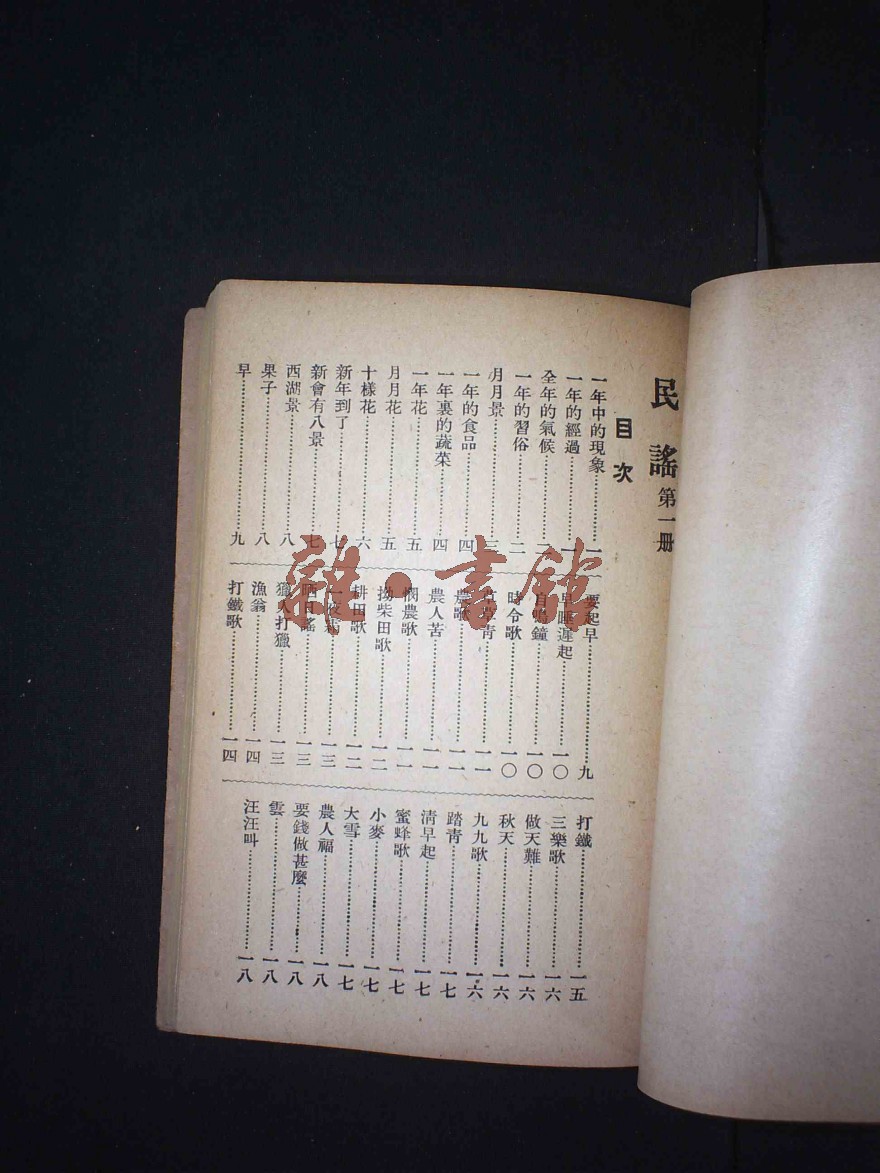 民謠 第一册
目次
一年中的現象……一
一年的經過……一
全年的氣候……
一年的習俗……二
月月景……三
一年的食品……四
一年裏的蔬菜……四
一年花……五
月月花……五
十樣花……六
新年到了……七
新會有八景……七
西湖景……八
果子……八
早……九
要起早……九
早睡遲起……一〇
自鳴鐘……一〇
時令歌……一〇
草青……一一
農歌……一一
農人苦……一一
憫農歌……一一
拗柴田歌……一二
耕田歌……一二
一夜……一三
晒日謠……一三
獵人打獵……一三
漁翁……一四
打鐵歌……一四
打鐵……一五
三樂歌……一六
做天難……一六
秋天……一六
九九歌……一六
踏青……一七
清早起……一七
蜜蜂歌……一七
小麥……一七
大雪……一七
農人福……一八
要錢做甚麼……一八
雲……一八
汪汪叫……一八
雜·書館